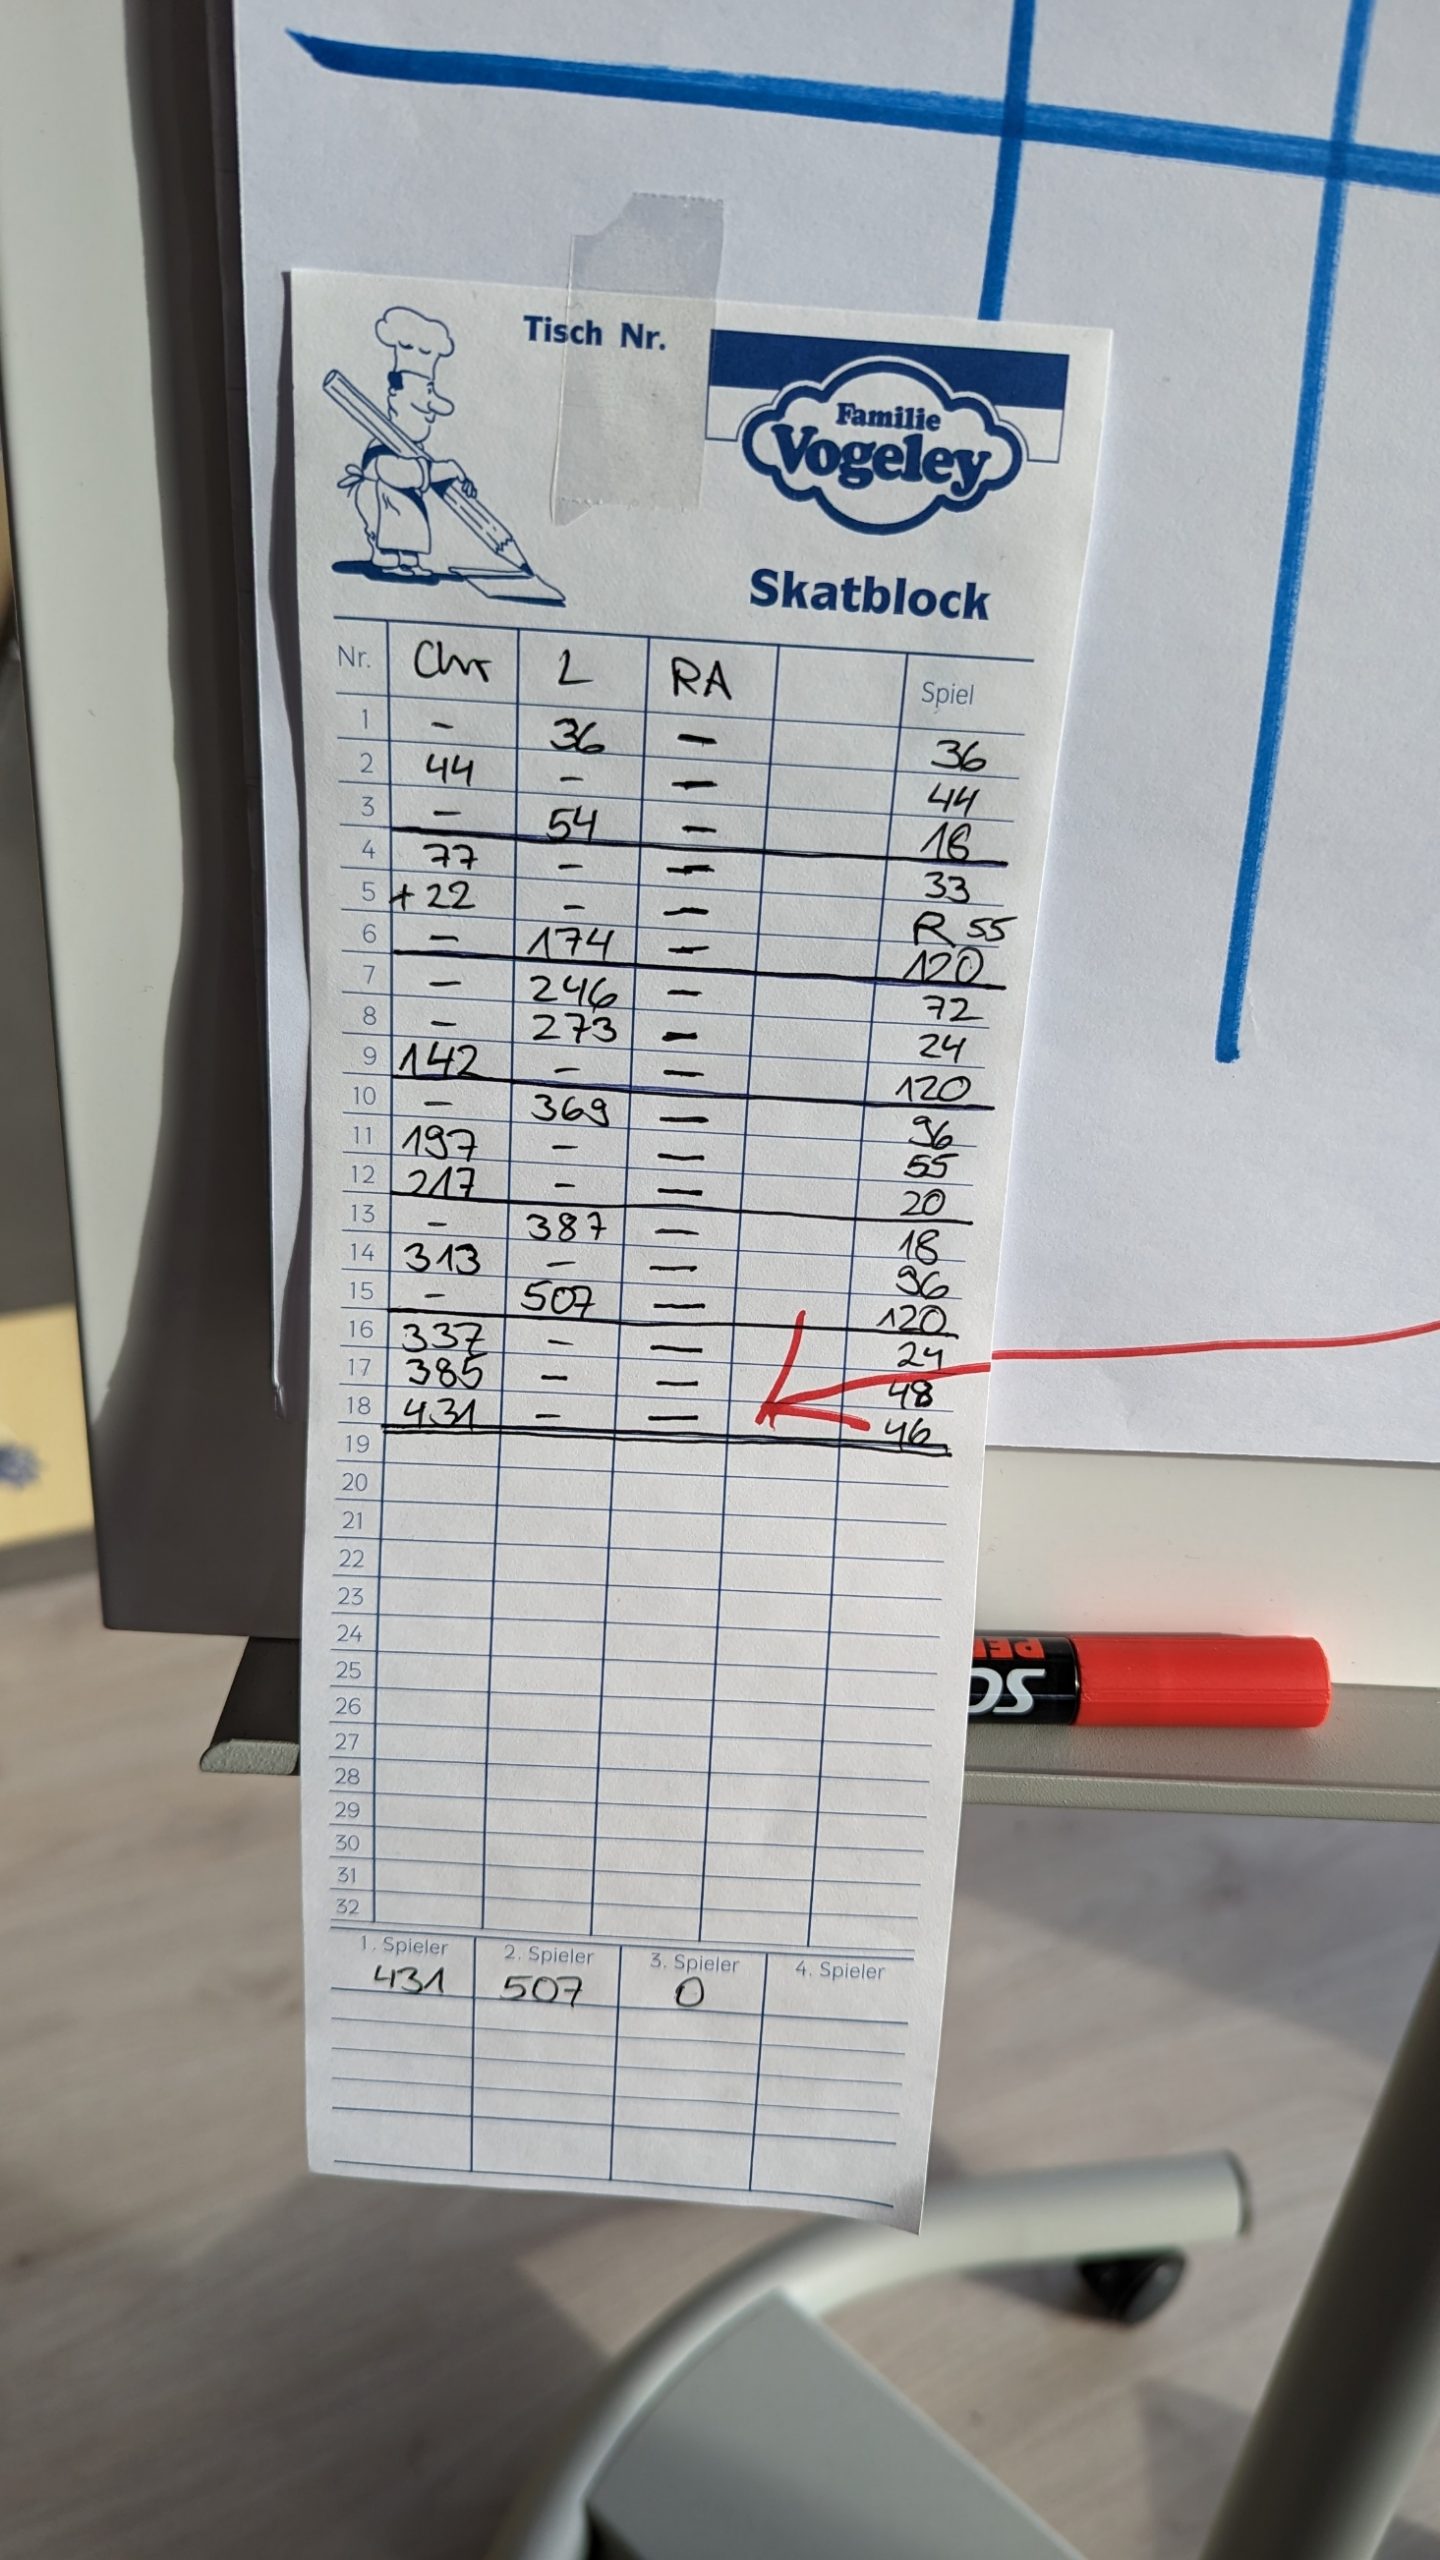 Tisch Nr.
Familie
Vogeley
Skatblock
Nr. Chr L RA Spiel
1 - 36 - 36
2 44 - - 44
3 - 54 - 18
4 77 - - 33
5 +22 - - R 55
6 - 174 - 120
7 - 246 - 72
8 - 273 - 24
9 142 - - 120
10 - 369 - 96
11 197 - - 55
12 217 - - 20
13 - 387 - 18
14 313 - - 96
15 - 507 - 120
16 337 - - 24
17 385 - - 48
18 431 - - 46
19
20
21
22
23
24
25
26
27
28
29
30
31
32
1. Spieler 2. Spieler 3. Spieler 4. Spieler
431 507 0